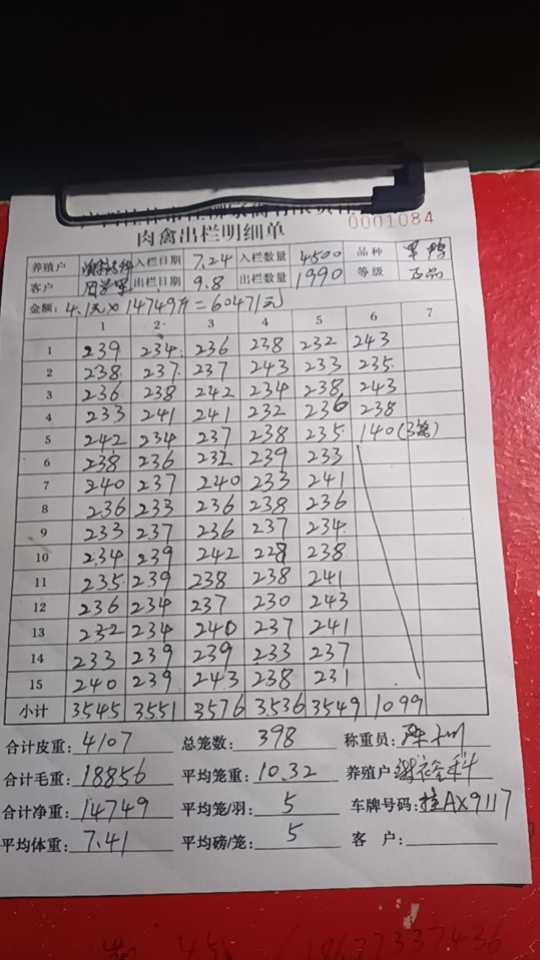 0001084
肉禽出栏明细单
养殖户 入栏日期 7.24 入栏数量 4500 品种
客户 出栏日期 9.8 出栏数量 1990 等级 正品
金额: 4.1元×14749斤=60471元
1 2 3 4 5 6 7
1 239 234 236 238 232 243
2 238 237 237 243 233 235
3 236 238 242 234 238 243
4 233 241 241 232 236 238
5 242 234 237 238 235 140(3笼)
6 238 236 232 239 233
7 240 237 240 233 241
8 236 233 236 238 236
9 233 237 236 237 234
10 234 239 242 228 238
11 235 239 238 238 241
12 236 234 237 230 243
13 232 234 240 237 241
14 233 239 239 233 237
15 240 239 243 238 231
小计 3545 3551 3576 3536 3549 1099
合计皮重: 4107 总笼数: 398 称重员:
合计毛重: 18856 平均笼重: 10.32 养殖户
合计净重: 14749 平均笼/羽: 5 车牌号码: 桂AX9117
平均体重: 7.41 平均磅/笼: 5 客户: